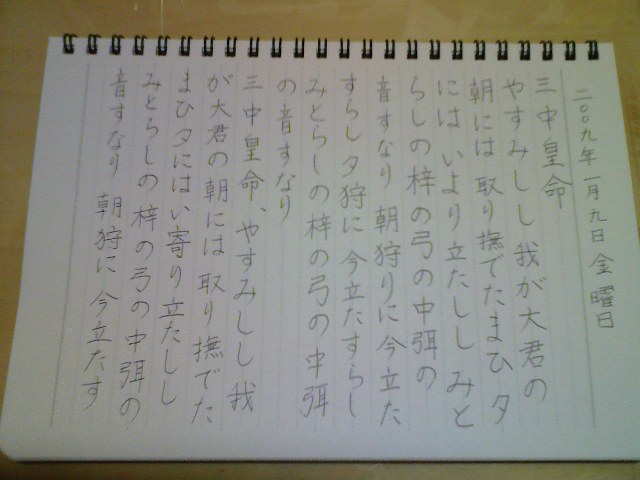 二〇〇九年一月九日 金曜日
三 中皇命
やすみしし 我が大君の
朝には 取り撫でたまひ 夕
には いより立たしし みと
らしの 梓の弓の 中弭の
音すなり 朝狩りに 今立た
すらし 夕狩に 今立たすらし
みとらしの 梓の弓の 中弭
の音すなり
三 中皇命、やすみしし 我
が大君の 朝には 取り撫でた
まひ 夕には い寄り立たしし
みとらしの 梓の弓の 中弭の
音すなり 朝狩に 今立たす